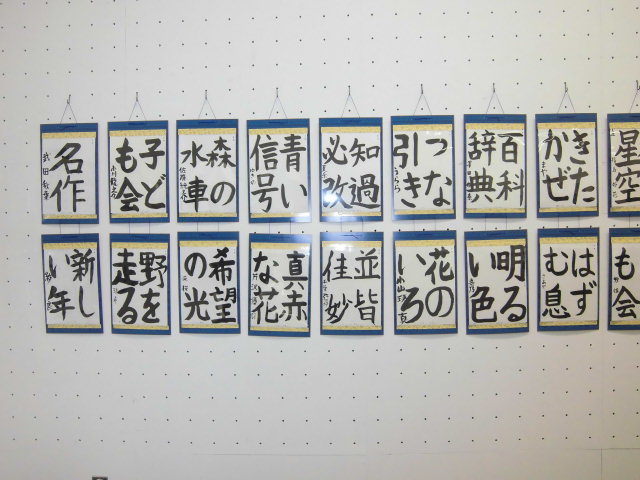 名作
子ども会
森の水車
青い信号
知過必改
つな引き
百科辞典
きたかぜ
星空
新しい年
野を走る
希望の光
真赤な花
並皆佳妙
花のいろ
明るい色
はずむ息
も会